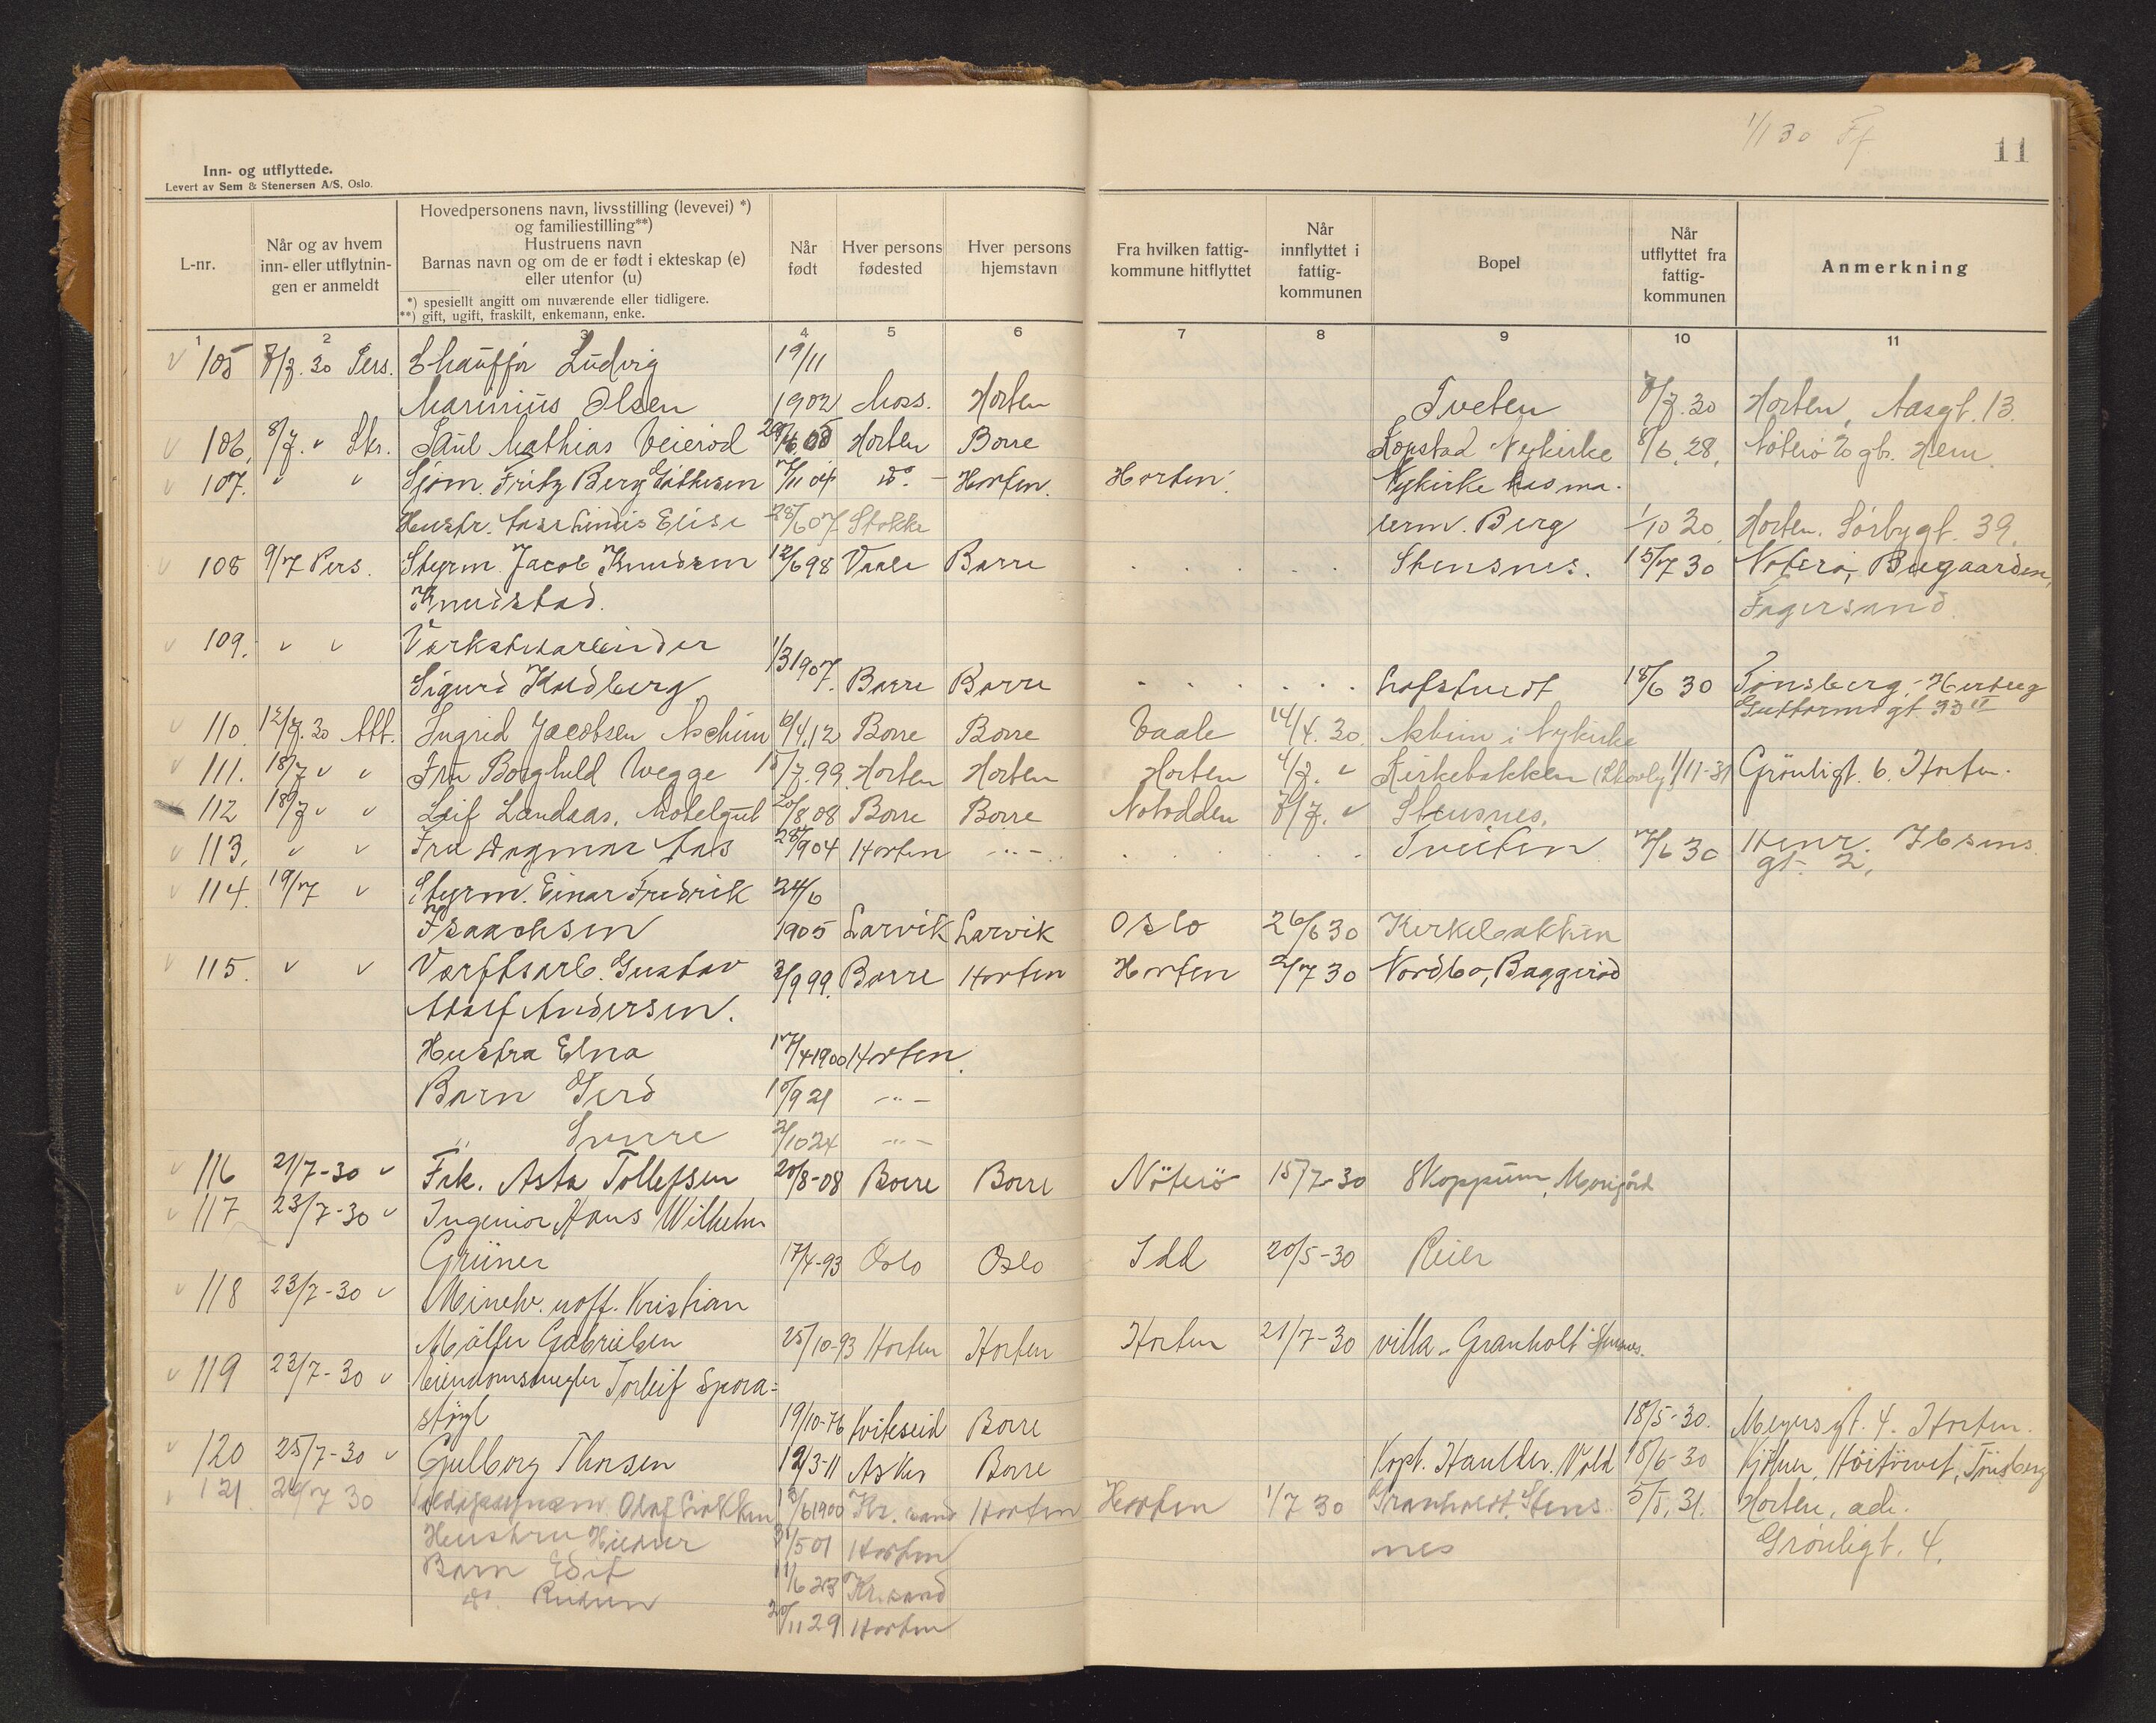 1/1 30 Ff
11
Inn- og utflyttede.
Levert av Sem & Stenersen A/S, Oslo.
L-nr.
Når og av hvem inn- eller utflytningen er anmeldt
Hovedpersonens navn, livsstilling (levevei) *)
og familiestilling**)
Hustruens navn
Barnas navn og om de er født i ekteskap (e)
eller utenfor (u)
*) spesiellt angitt om nuværende eller tidligere.
**) gift, ugift, fraskilt, enkemann, enke.
Når født
Hver persons fødested
Hver persons hjemstavn
Fra hvilken fattigkommune hitflyttet
Når innflyttet i fattigkommunen
Bopel
Når utflyttet fra fattigkommunen
Anmerkning
1 2 3 4 5 6 7 8 9 10 11
105 8/7. 30 Pers. Chauffør Ludvig 19/11
Marinius Olsen 1902 Moss. Horten Tveten 8/7. 30 Horten, Aasgt. 13.
106. 8/7. " Skr. Paul Mathias Veierød 29/6. 05 Horten Borre Kopstad Nykirke 8/6. 28. Nøterø
107. " " Sjøm. Fritz Berg Gåthesen 7/11 04 do. - Horten. Horten. Nykirke
Hustr. Elise 28/6 07 Stokke Berg 1/10 30 Horten. Sørbygt. 39.
108 9/7 Pers. Styrm. Jacob Knudsen 12/6 98 Vaale Borre Stensnes. 15/7 30 Nøterø, Buegaarden,
Knudstad. Fagersand
109. " " Verkstedarbeider
Sigurd Kaldberg 1/3 1907. Borre Borre 18/6 30 Tønsberg, Hertug
Guttormsgt 33 II
110. 12/7. 30 Att. Ingrid Jacobsen Aschim 6/4. 12 Borre Borre Vaale 14/4. 30. Askim i Nykirke
111. 18/7 " " Fru Borghild Wegge 15/7. 99. Horten Horten Horten 4/7. " Kirkebakken 1/11-31 Grønligt. 6. Horten.
112 18/7 " " Leif Landaas, Hotelgut 20/8. 08 Borre Borre Notodden 7/7. " Stensnes.
113. " " Fru Dagmar Aas 28/9 04 Horten -"- Tveiten 7/6 30 Henr. Ibsens
gt. 2.
114. 19/7 " Styrm. Einar Fredrik 24/6
Isaachsen 1905 Larvik Larvik Oslo 26/6 30 Kirkebakken
115. " " Verftsarb. Gustav 3/9 99. Borre Horten Horten 2/7 30 Nordbo, Baggerød
Adolf Andersen.
Hustru Elna 17/4 1900 Horten.
Barn Gerd 10/9 21 -"-
" Sverre 2/10 24 -"-
116 21/7-30 " Frk. Asta Tollefsen 20/8-08 Borre Borre Nöterö 15/7-30 Skoppum,
117 23/7-30 " Ingeniør Hans Wilhelm
Grüner 17/4-93 Oslo Oslo Idd 20/5-30 Reier
118 23/7-30 " Minelv. uoff. Kristian
Møller Gabrielsen 25/10-93 Horten Horten Horten 21/7-30 villa "Granholt" Stensnes.
119 23/7-30 " Eiendomsmegler Torleif Spora=
støyl 19/10-76 Kviteseid Borre 18/5-30. Meyersgt. 4. Horten.
120 25/7-30 " Gulborg Thorsen 12/3-11 Asker Borre Kopt. Vold 18/6-30 Tönsberg
121. 26/7 30 Olaf 13/6 1900 Kr. sand Horten Horten 1/7 30 Granholdt, Stens- 5/5. 31. Horten, adr.
Hustru 31/5 01 Horten nes Grønligt. 4.
Barn Edit 11/6 23 Kr. sand
do. Reidun 20/11 29 Horten